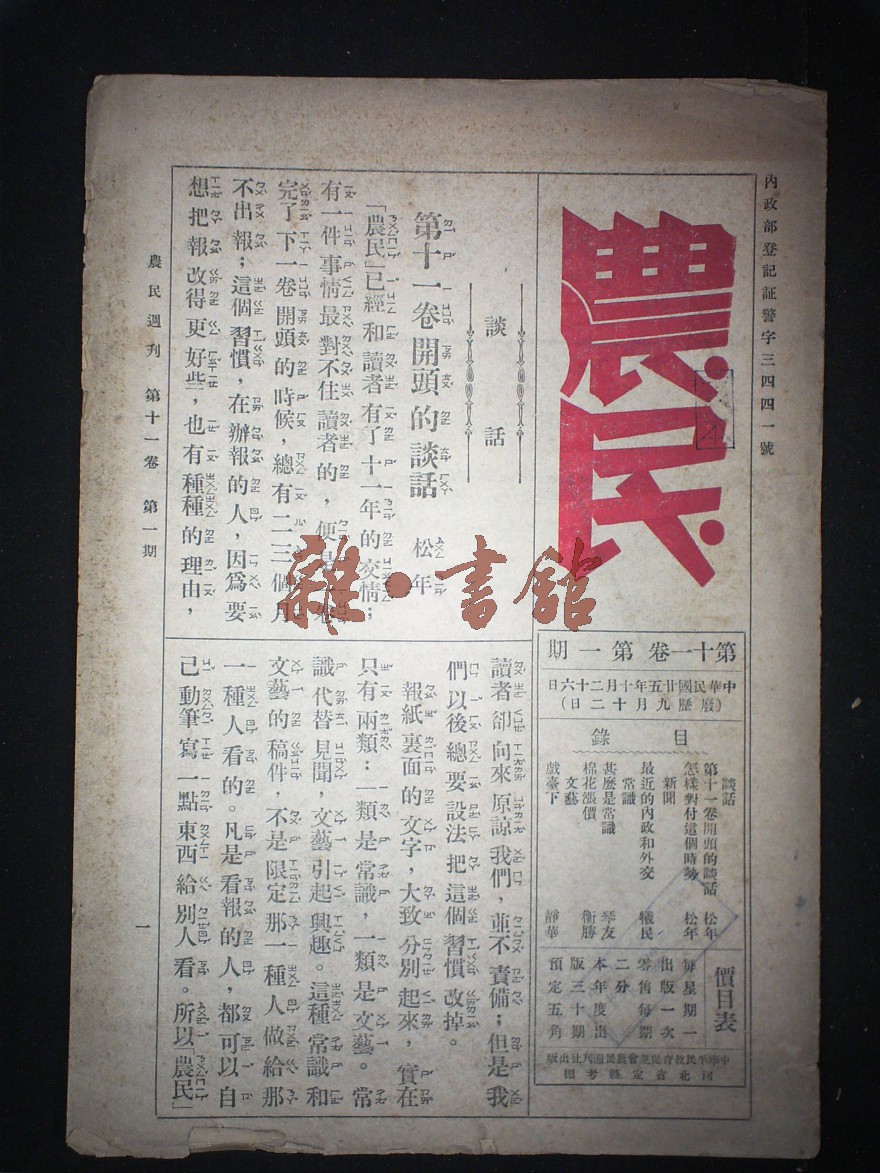 內政部登記証警字三四四一號
農民
第十一卷第一期
中華民國廿五年十月二十六日
(廢歷九月十二日)
目錄
談話
第十一卷開頭的談話 松年
怎樣對付這個時勢 松年
新聞
最近的內政和外交 犧民
常識
甚麼是常識 琴友
棉花漲價 衡勝
文藝
戲臺下 靜華
價目表
每星期一
出版一次
零售每期
二分
本年度出
版三十期
預定五角
中華平民教育促進會農民週刊社出版
河北省定縣考棚
談話
第十一卷開頭的談話 松年
「農民」已經和讀者有了十一年的交情;
有一件事情最對不住讀者的,便是一卷
完了下一卷開頭的時候,總有二三個月
不出報;這個習慣,在辦報的人,因爲要
想把報改得更好些,也有種種的理由,
讀者卻向來原諒我們,並不責備;但是我
們以後總要設法把這個習慣改掉。
報紙裏面的文字,大致分別起來,實在
只有兩類:一類是常識,一類是文藝。常
識代替見聞,文藝引起興趣。這種常識和
文藝的稿件,不是限定那一種人做給那
一種人看的。凡是看報的人,都可以自
己動筆寫一點東西給別人看。所以「農民」
農民週刊 第十一卷 第一期
一
雜·書館